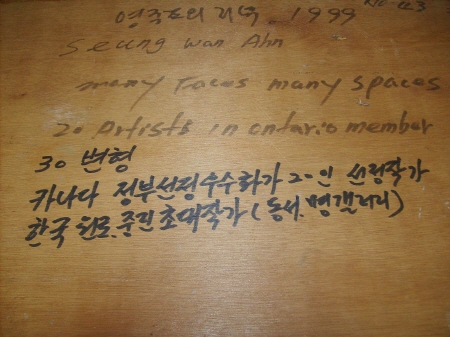 1999 No 43
Seung wan Ahn
many Faces many spaces
20 Artists in ontario member
30 변형
카나다 정부선정 우수화가 20인 선정작가
한국 원로.중진 초대작가(동서.명갤러리)